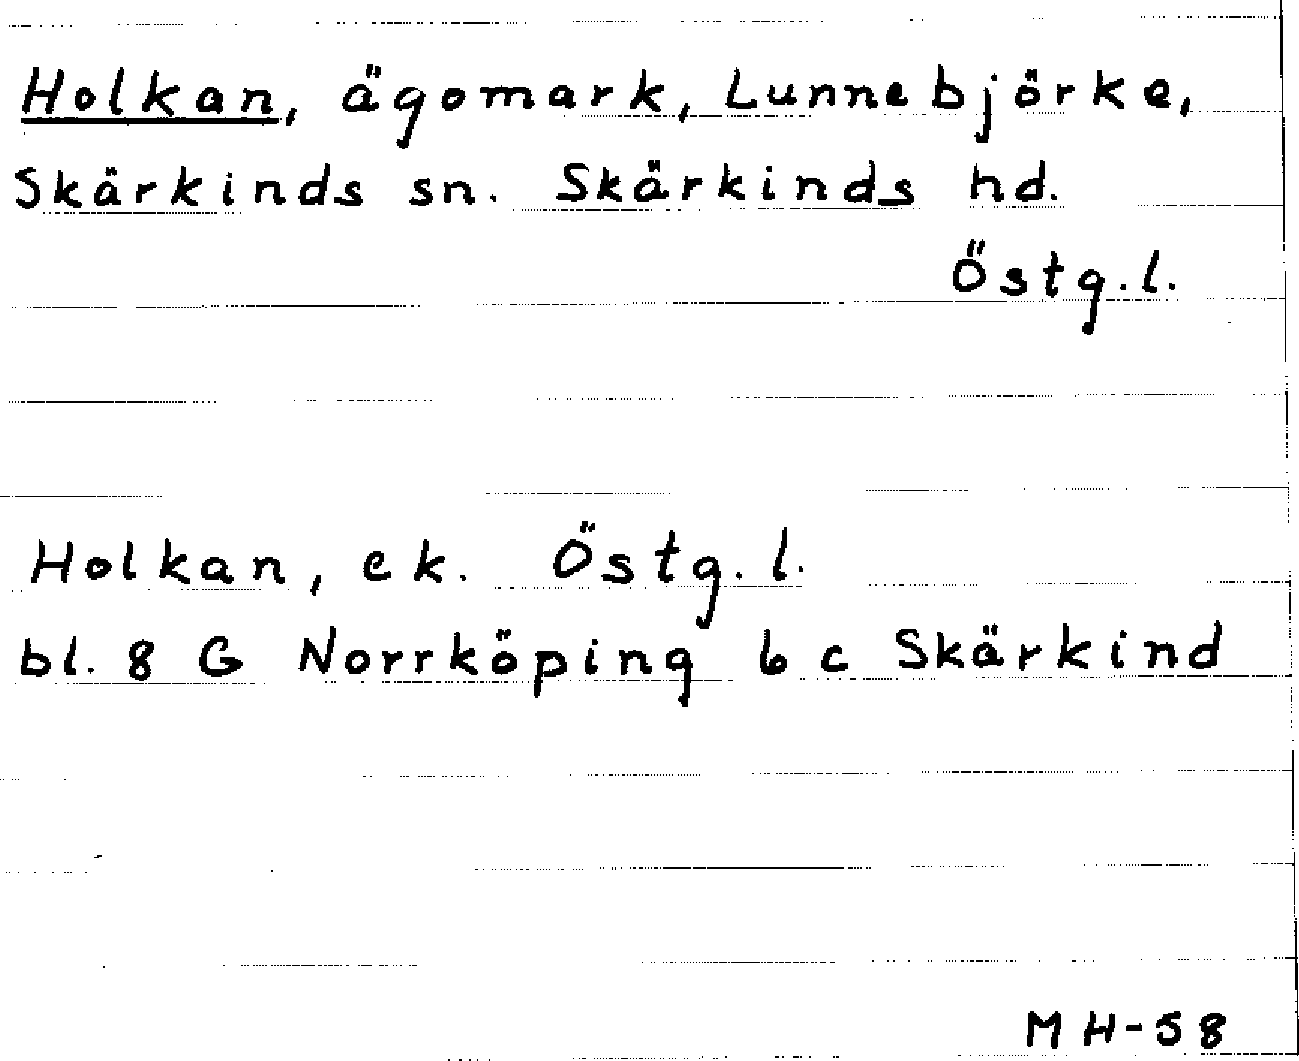 Holkan, ägomark, Lunnebjörke,
Skärkinds sn. Skärkinds hd.
Östg.l.
Holkan, ek. Östg.l.
bl. 8 G Norrköping 6 c Skärkind
MH-58